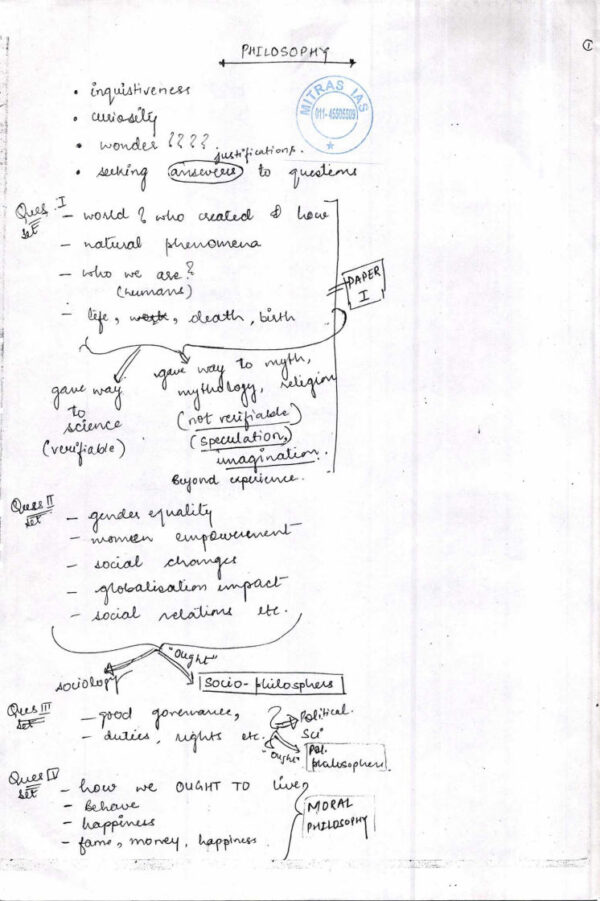 ①
PHILOSOPHY
• inquistiveness
• curiosity
• wonder ????
justifications.
• seeking answeres to questions
MITRAS IAS
011-45505509
Ques. I
set
- world? who created & how
- natural phenomena
- who we are?
(humans)
- life, death, birth
PAPER
I
gave way
to
science
(verifiable)
gave way to myth,
mythology, religion
(not verifiable)
(speculation,)
imagination.
Beyond experience.
Ques II
set
- gender equality
- women empowerment
- social changes
- globalisation impact
- social relations etc.
"Ought"
sociology
Socio-philosphers
Ques III
set
- good governance,
- duties, rights etc.
Political.
Sci
"Ought"
Pol.
philosophers
Ques IV
set
- how we OUGHT TO live
- Behave
- happiness
- fame, money, happiness.
MORAL
PHILOSOPHY